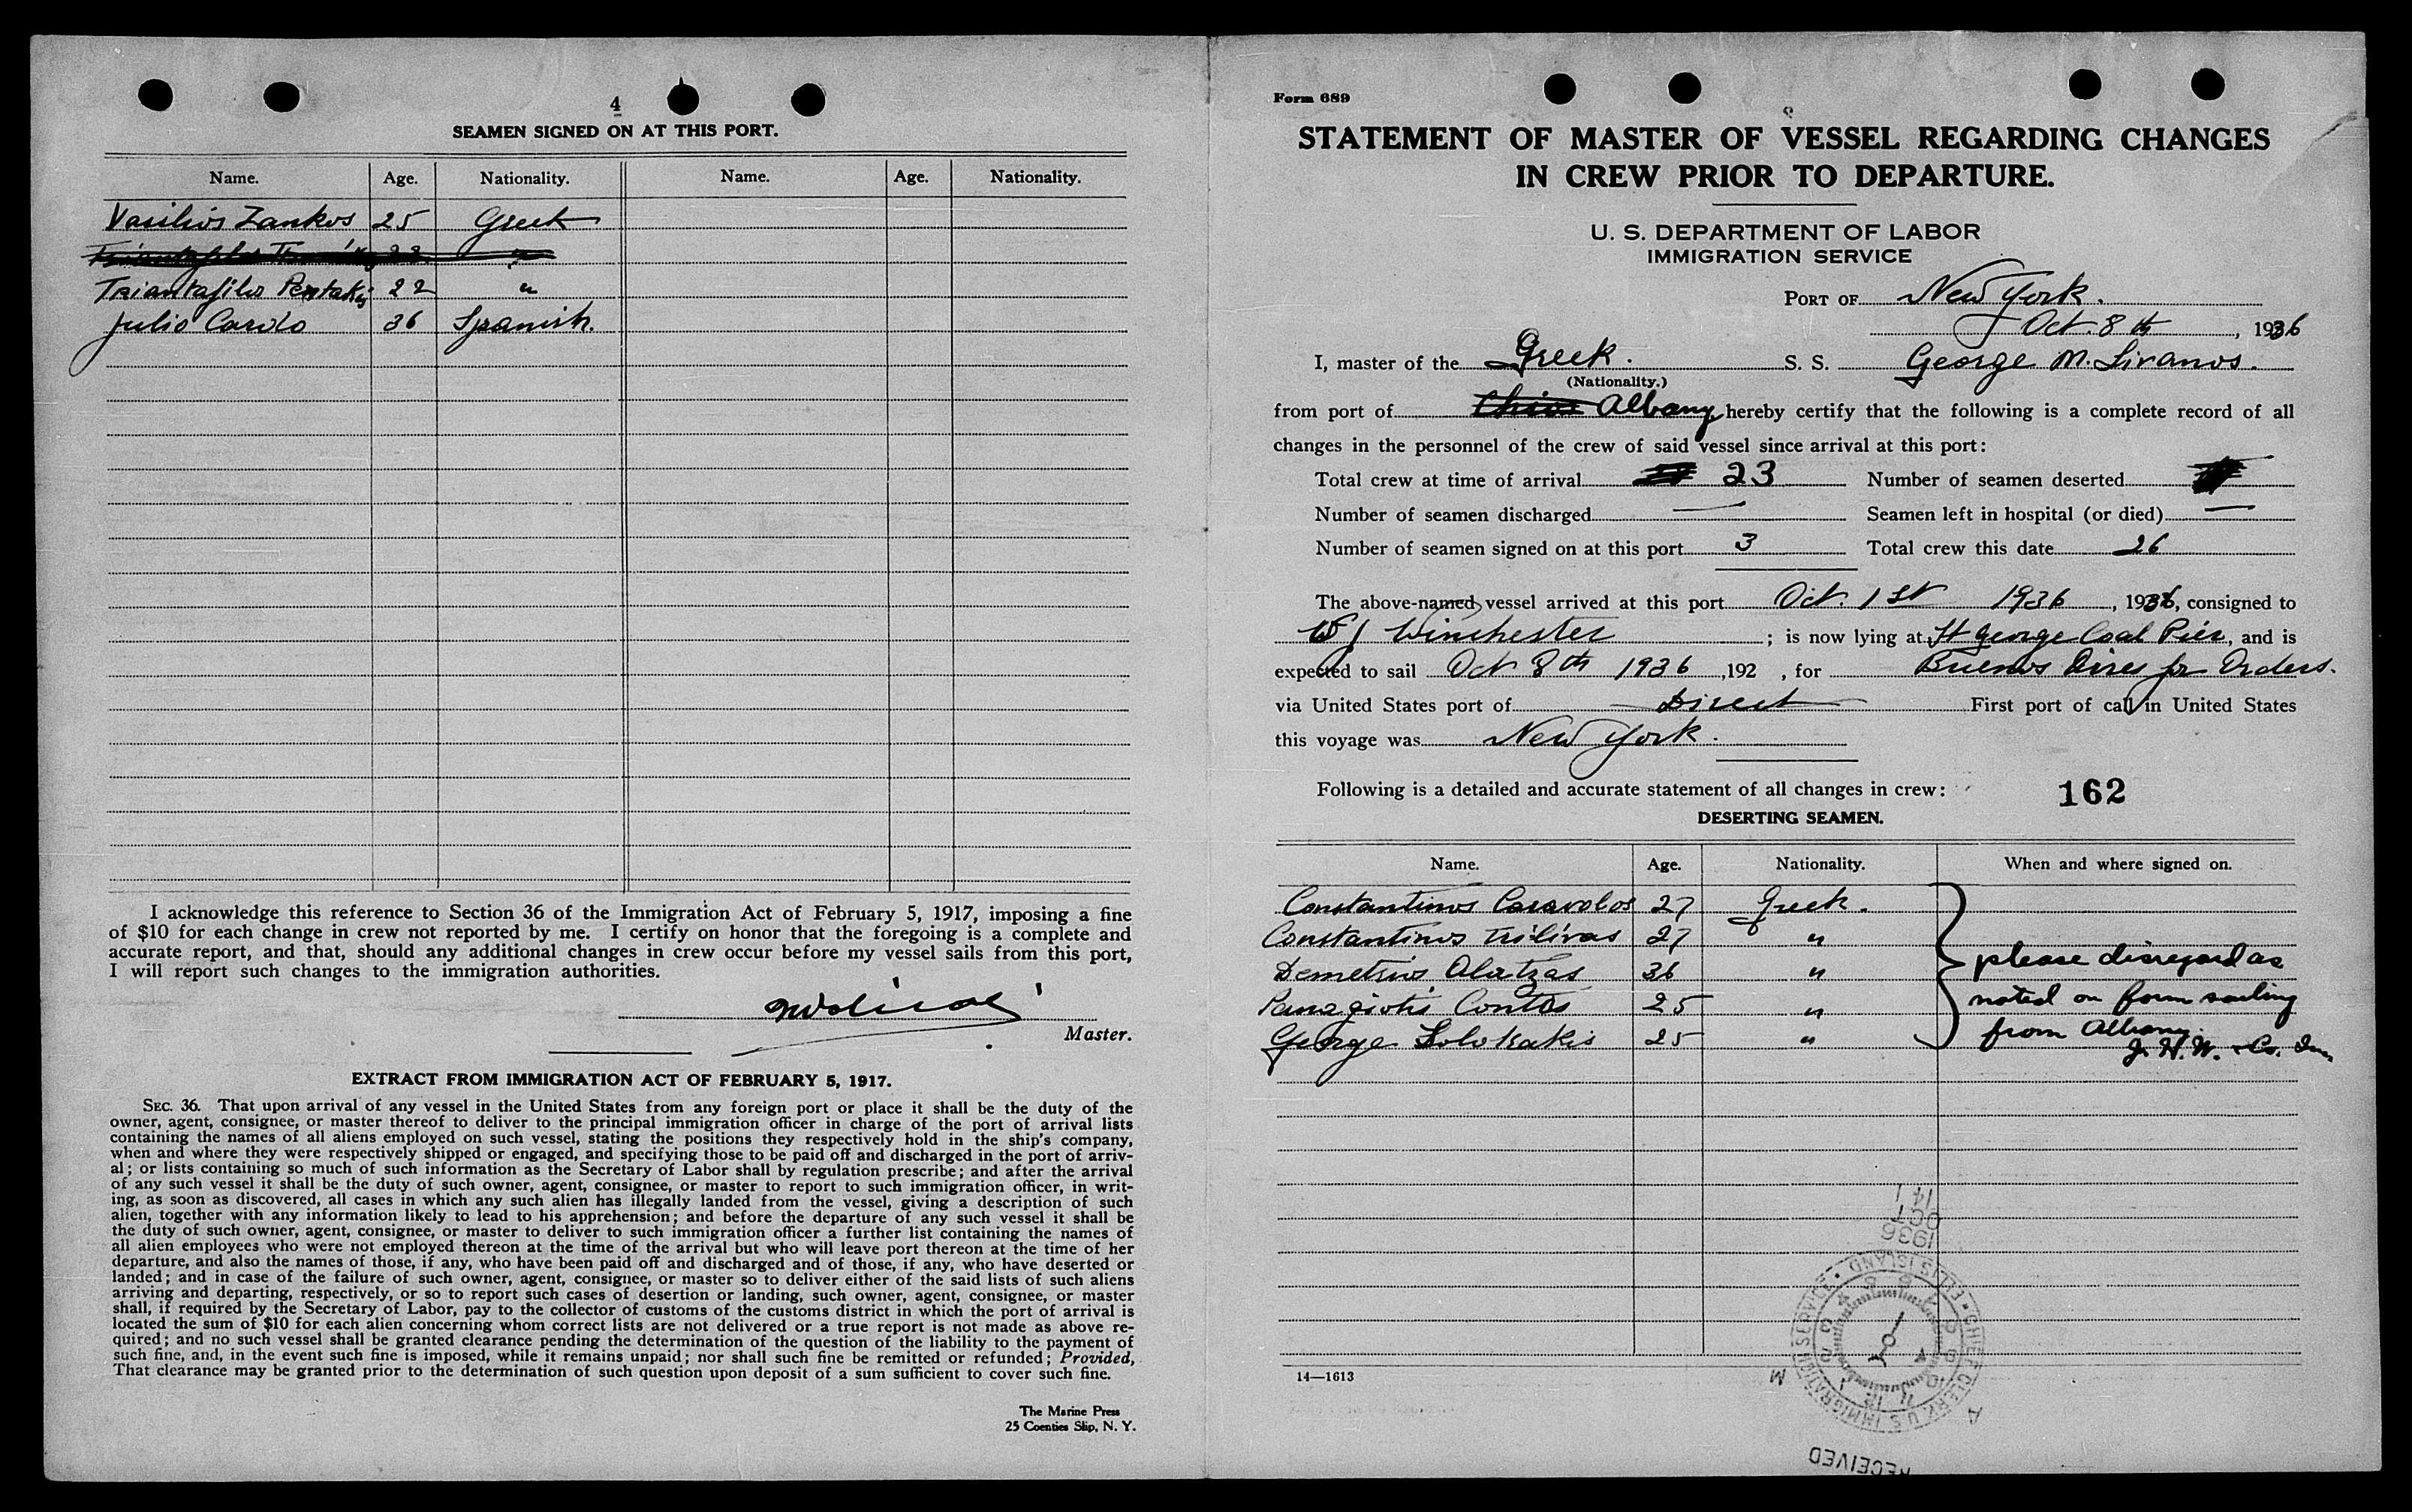 4
SEAMEN SIGNED ON AT THIS PORT.
Name. Age. Nationality. Name. Age. Nationality.
Vasilios Zankos 25 Greek
22 "
Triantafilos Pentakis 22 "
Julio Cardo 36 Spanish.
I acknowledge this reference to Section 36 of the Immigration Act of February 5, 1917, imposing a fine
of $10 for each change in crew not reported by me. I certify on honor that the foregoing is a complete and
accurate report, and that, should any additional changes in crew occur before my vessel sails from this port,
I will report such changes to the immigration authorities.
Master.
EXTRACT FROM IMMIGRATION ACT OF FEBRUARY 5, 1917.
SEC. 36. That upon arrival of any vessel in the United States from any foreign port or place it shall be the duty of the
owner, agent, consignee, or master thereof to deliver to the principal immigration officer in charge of the port of arrival lists
containing the names of all aliens employed on such vessel, stating the positions they respectively hold in the ship's company,
when and where they were respectively shipped or engaged, and specifying those to be paid off and discharged in the port of arriv-
al; or lists containing so much of such information as the Secretary of Labor shall by regulation prescribe; and after the arrival
of any such vessel it shall be the duty of such owner, agent, consignee, or master to report to such immigration officer, in writ-
ing, as soon as discovered, all cases in which any such alien has illegally landed from the vessel, giving a description of such
alien, together with any information likely to lead to his apprehension; and before the departure of any such vessel it shall be
the duty of such owner, agent, consignee, or master to deliver to such immigration officer a further list containing the names of
all alien employees who were not employed thereon at the time of the arrival but who will leave port thereon at the time of her
departure, and also the names of those, if any, who have been paid off and discharged and of those, if any, who have deserted or
landed; and in case of the failure of such owner, agent, consignee, or master so to deliver either of the said lists of such aliens
arriving and departing, respectively, or so to report such cases of desertion or landing, such owner, agent, consignee, or master
shall, if required by the Secretary of Labor, pay to the collector of customs of the customs district in which the port of arrival is
located the sum of $10 for each alien concerning whom correct lists are not delivered or a true report is not made as above re-
quired; and no such vessel shall be granted clearance pending the determination of the question of the liability to the payment of
such fine, and, in the event such fine is imposed, while it remains unpaid; nor shall such fine be remitted or refunded; Provided,
That clearance may be granted prior to the determination of such question upon deposit of a sum sufficient to cover such fine.
The Marine Press
25 Coenties Slip, N. Y.
Form 689
STATEMENT OF MASTER OF VESSEL REGARDING CHANGES
IN CREW PRIOR TO DEPARTURE.
U. S. DEPARTMENT OF LABOR
IMMIGRATION SERVICE
PORT OF New York.
Oct. 8th, 1936
I, master of the Greek. S. S. George M. Livanos.
(Nationality.)
from port of Chios Albany hereby certify that the following is a complete record of all
changes in the personnel of the crew of said vessel since arrival at this port:
Total crew at time of arrival 23 Number of seamen deserted
Number of seamen discharged — Seamen left in hospital (or died) —
Number of seamen signed on at this port 3 Total crew this date 26
The above-named vessel arrived at this port Oct. 1st 1936, 1936, consigned to
W J Winchester; is now lying at St George Coal Pier, and is
expected to sail Oct 8th 1936, 192 , for Buenos Aires for Orders.
via United States port of Direct First port of call in United States
this voyage was New York.
Following is a detailed and accurate statement of all changes in crew: 162
DESERTING SEAMEN.
Name. Age. Nationality. When and where signed on.
Constantinos Caravolos 27 Greek.
Constantinos Trilivas 27 "
Demetrios Alatzas 36 " please disregard as
Panagiotis Contos 25 " noted on form sailing
George Kolokakis 25 " from Albany.
J. H. W. & Co. Inc
14—1613
14 1
OCT
1936
CHIEF CLERK, U.S. IMMIGRATION SERVICE • ELLIS ISLAND •
M
A
RECEIVED